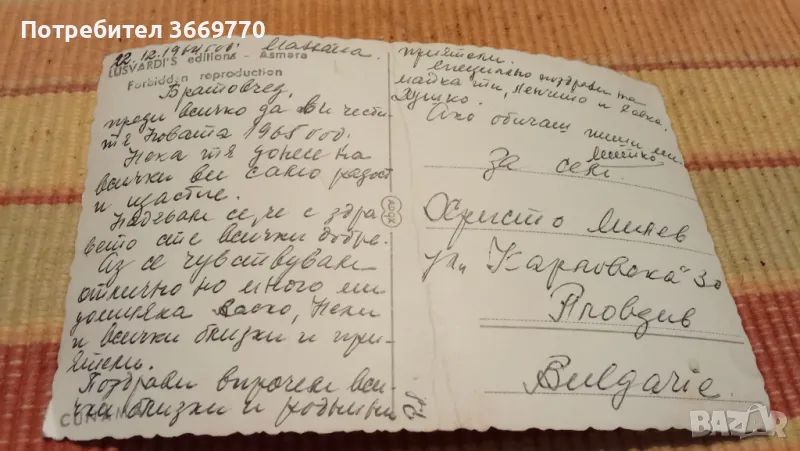 Потребител 3669770
22.12.1964 год.
LUSVARDI'S editions - Asmara
Forbidden reproduction
Братовчед,
преди всичко да Ви чести-
тя Новата 1965 год.
Нека тя донесе на
всички ви само радост
и щастие.
Надявам се, че с здра-
вето сте всички добре.
Аз се чувствувам
отлично но много ми
домиляха Васко, Нени
и всички близки и при-
ятели.
Поздрави впрочем вси-
чки близки и роднини
приятели.
Специално поздрави на
майка ти,
Ако обичаш пиши ми
Митко
За сем.
Христо Минев
ул. "Карловска" 30
Пловдив
Bulgarie.
BAZAR
bg